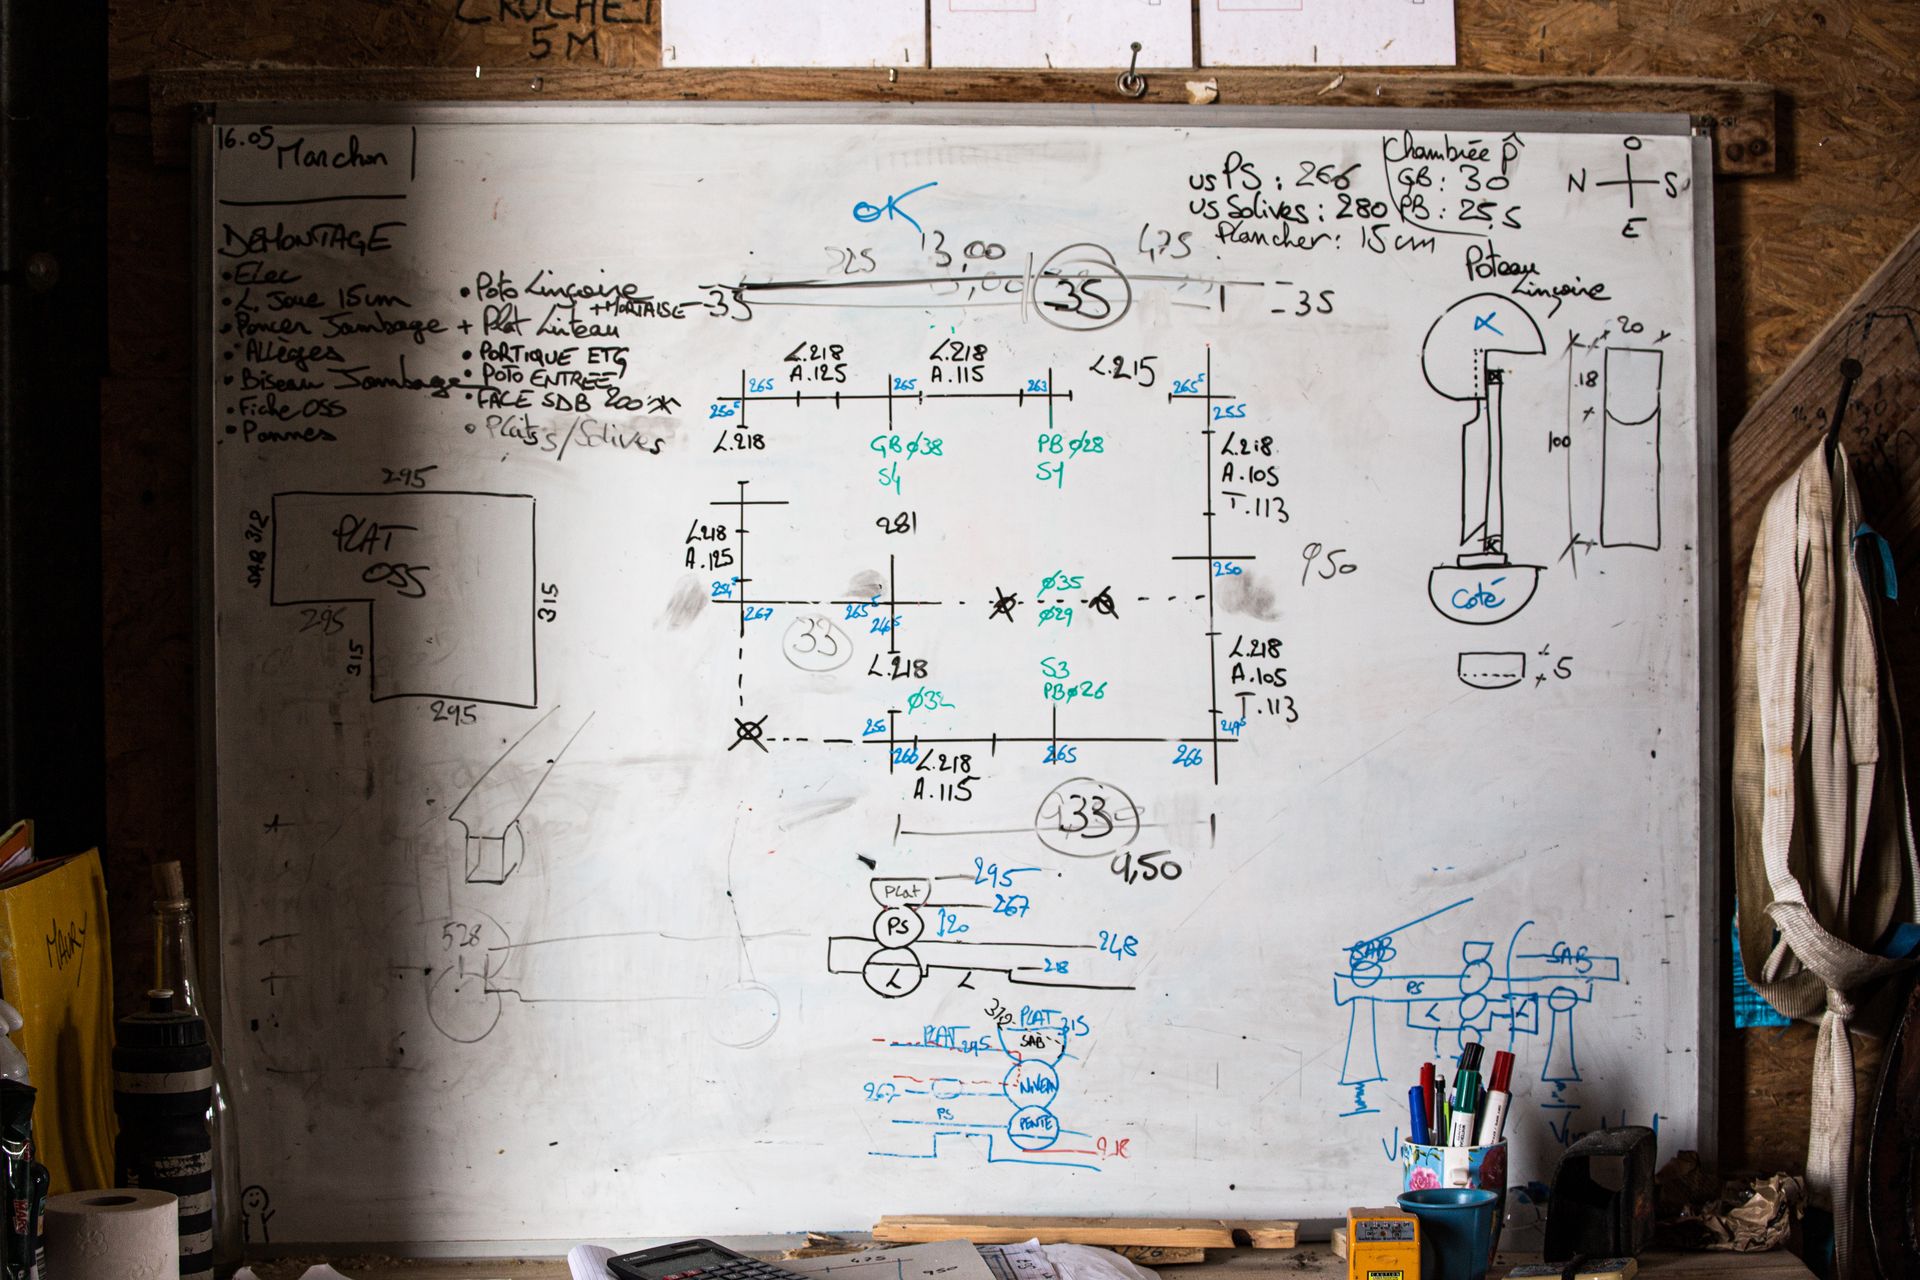 CROCHET
5M
16.05 Marchon
DEMONTAGE
• Elec
• L. Joue 15cm
• Poncer Jambage
• Allèges
• Biseau Jambage
• Fiche OSS
• Pannes
• Poto Linçoire
+ MORTAISE
+ Plat Linteau
• PORTIQUE ETG
• POTO ENTREE
• FACE SDB 200
• Plats/Solives
OK
325
13,00
475
-35
-35
-35
us PS : 266
us Solives : 280
Plancher : 15cm
Chambrée
GB : 30
PB : 25,5
O
N
S
E
Poteau
Linçoire
20
18
100
Coté
5
L.218
A.125
L.218
A.115
L.215
265
265
263
265⁵
250⁵
255
L.218
GBø38
S4
PBø28
S1
L.218
A.105
T.113
281
L.218
A.125
267
265⁵
246⁵
ø35
ø29
250
950
33
L.218
ø32
S3
PBø26
L.218
A.105
T.113
250
266
265
266
249⁵
L.218
A.115
33
9,50
295
SAB 312
PLAT
OSS
295
315
315
295
528
Plat
295
267
PS
20
248
L
L
218
PLAT
315
PLAT
295
SAB
267
NIVEAU
PS
PENTE
218
SAB
SAB
PS
L
L
MAURY